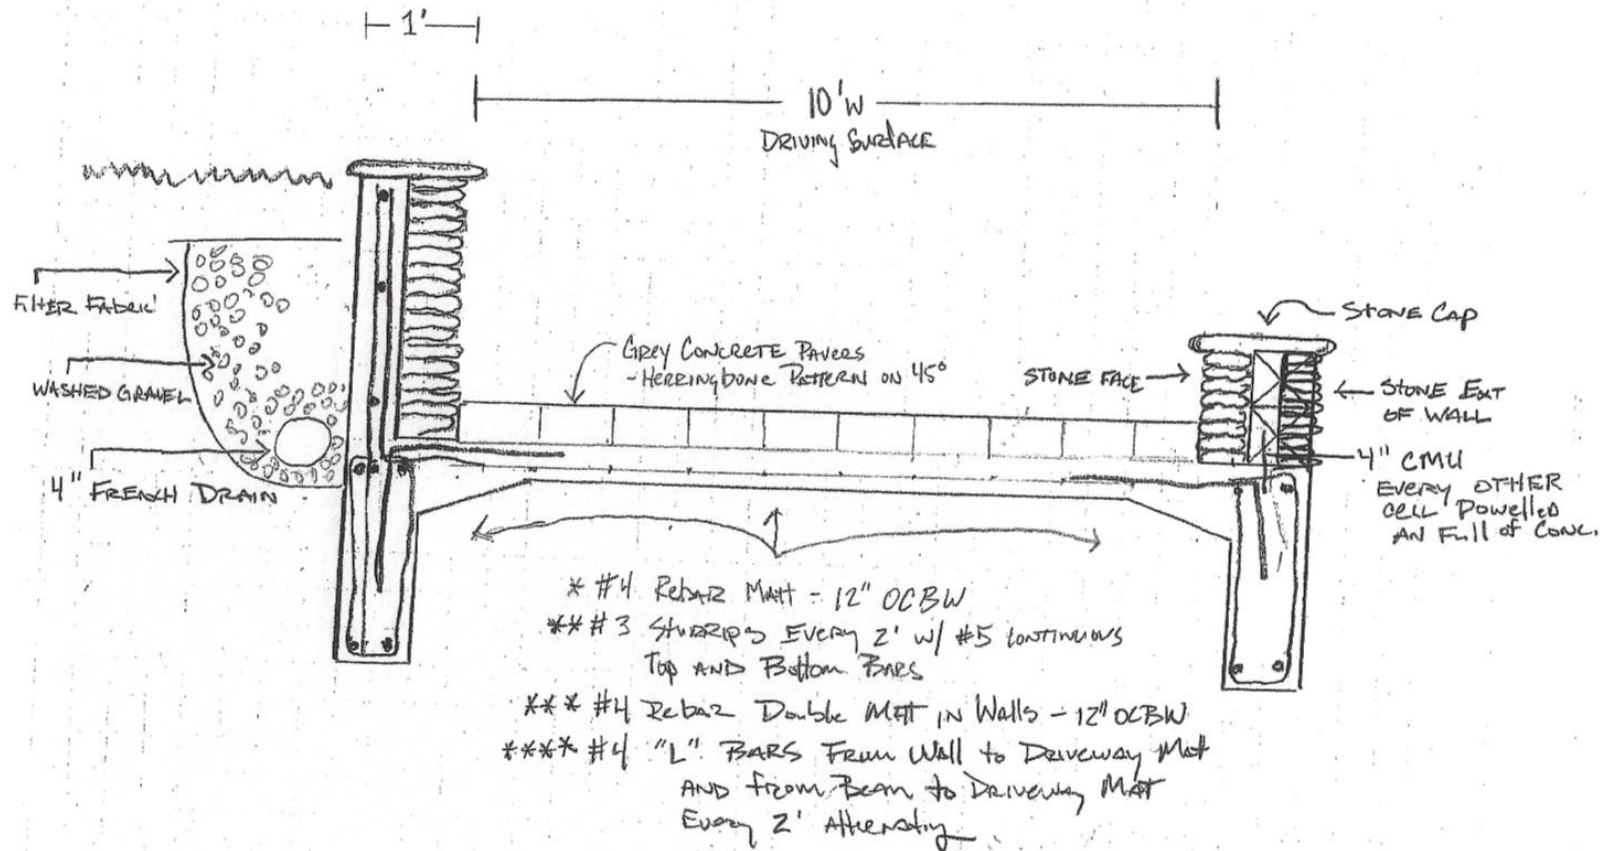 1'
10'W
Driving Surface
Filter Fabric
Washed Gravel
4" French Drain
Grey Concrete Pavers
- Herringbone Pattern on 45°
Stone Face
Stone Cap
Stone Ext
of Wall
4" CMU
Every Other
Cell Dowelled
An Full of Conc.
* #4 Rebar Matt - 12" OCBW
** #3 Every 2' w/ #5 Continuous
Top and Bottom Bars
*** #4 Rebar Double Matt in Walls - 12" OCBW
**** #4 "L" Bars From Wall to Driveway Mat
And from Beam to Driveway Mat
Every 2'